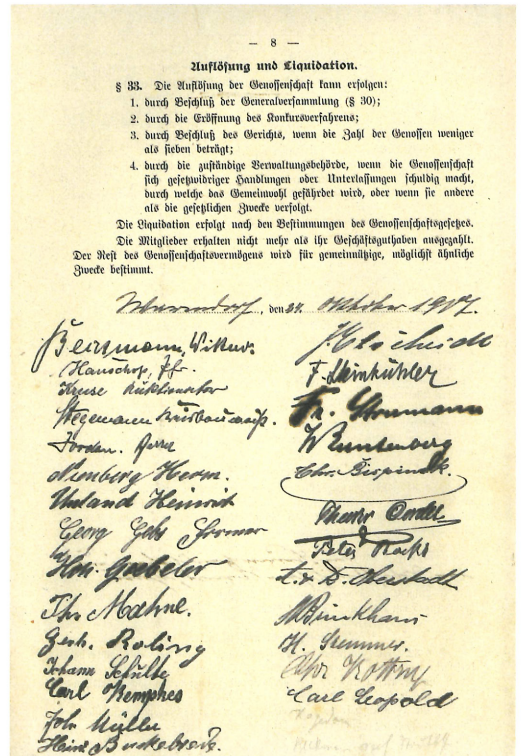 — 8 —
Auflösung und Liquidation.
§ 33. Die Auflösung der Genossenschaft kann erfolgen:
1. durch Beschluß der Generalversammlung (§ 30);
2. durch die Eröffnung des Konkursverfahrens;
3. durch Beschluß des Gerichts, wenn die Zahl der Genossen weniger
als sieben beträgt;
4. durch die zuständige Verwaltungsbehörde, wenn die Genossenschaft
sich gesetzwidriger Handlungen oder Unterlassungen schuldig macht,
durch welche das Gemeinwohl gefährdet wird, oder wenn sie andere
als die gesetzlichen Zwecke verfolgt.
Die Liquidation erfolgt nach den Bestimmungen des Genossenschaftsgesetzes.
Die Mitglieder erhalten nicht mehr als ihr Geschäftsguthaben ausgezahlt.
Der Rest des Genossenschaftsvermögens wird für gemeinnützige, möglichst ähnliche
Zwecke bestimmt.
Warendorf, den 24. Oktober 1917.
Kruse Auktionator
Stegemann
Jordan.
Nienberg Herm.
Umland Heinrich
Georg
Th. Mahne.
Gerh. Roling
Johann Schulte
Carl Kemphes
Joh. Müller
Heinr.
F. Kleinkühler
Fr. Strumann
Chr. Bispinck.
Peter
Brinkhaus
H.
Carl Leopold